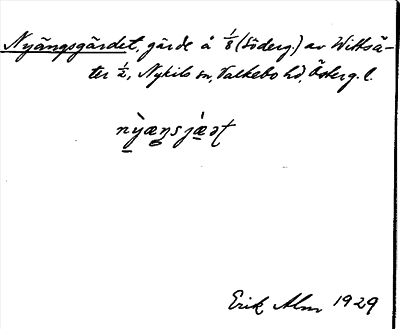 Nyängsgärdet, gärde å 1/8 (Söderg.) av Wittsä-
ter 1/2, Nykils sn, Valkebo hd, Österg. l.
nỳæŋsjæ̀ət
Erik Alm 1929